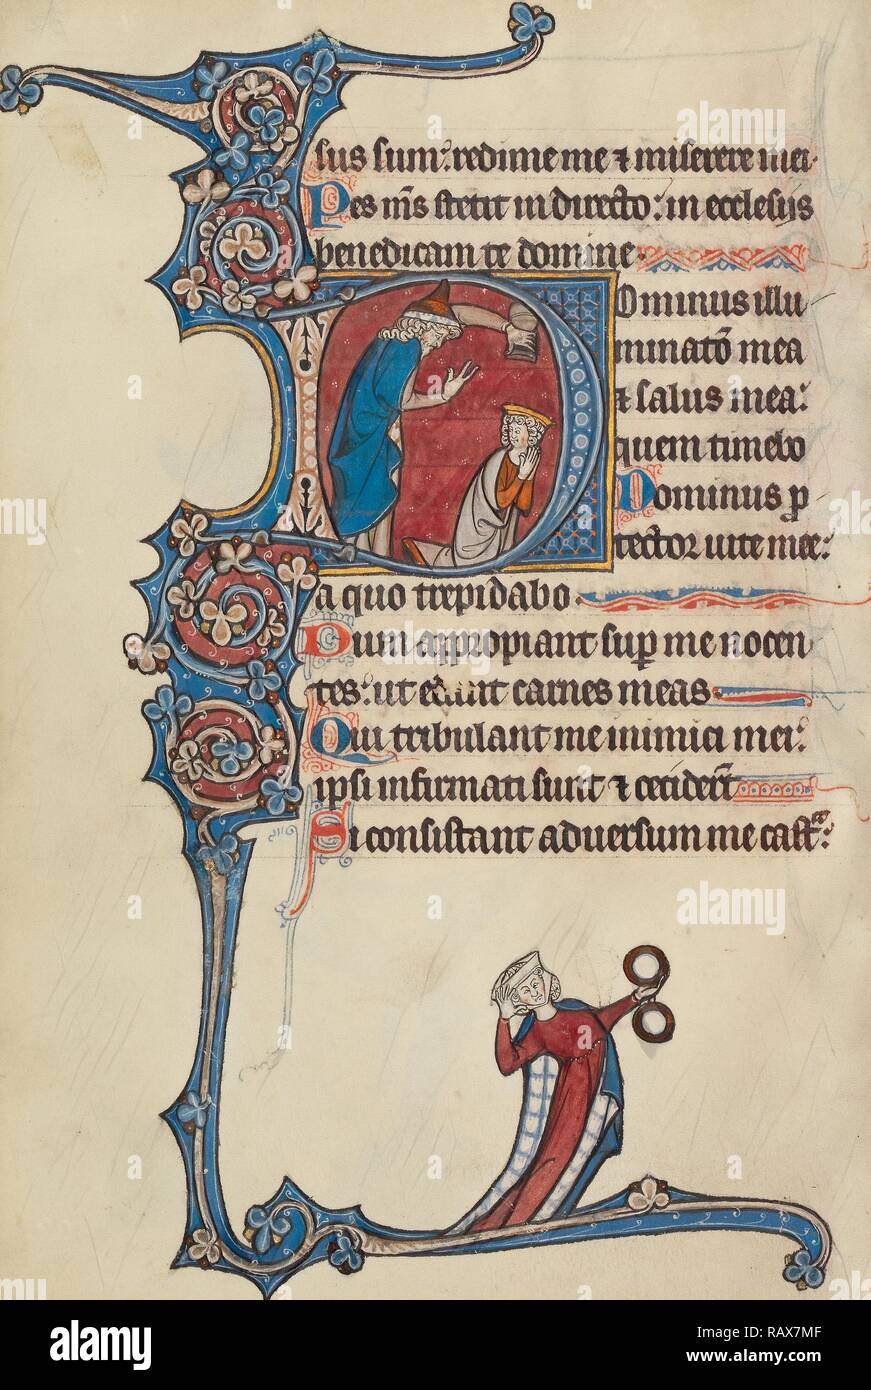 sus sum: redime me ⁊ miserere mei.
Pes m̄s stetit in directo: in ecclesiis
benedicam te domine.
Dominus illu
minatō mea
⁊ salus mea:
quem timebo
Dominus ꝓ
tector uite mee:
a quo trepidabo.
Dum appropiant sup̱ me nocen
tes: ut edant carnes meas.
Qui tribulant me inimici mei:
ipsi infirmati sunt ⁊ cecider̄t
Si consistant aduersum me castra:
alamy
alamy
alamy
alamy
Image ID: RAX7MF
www.alamy.com